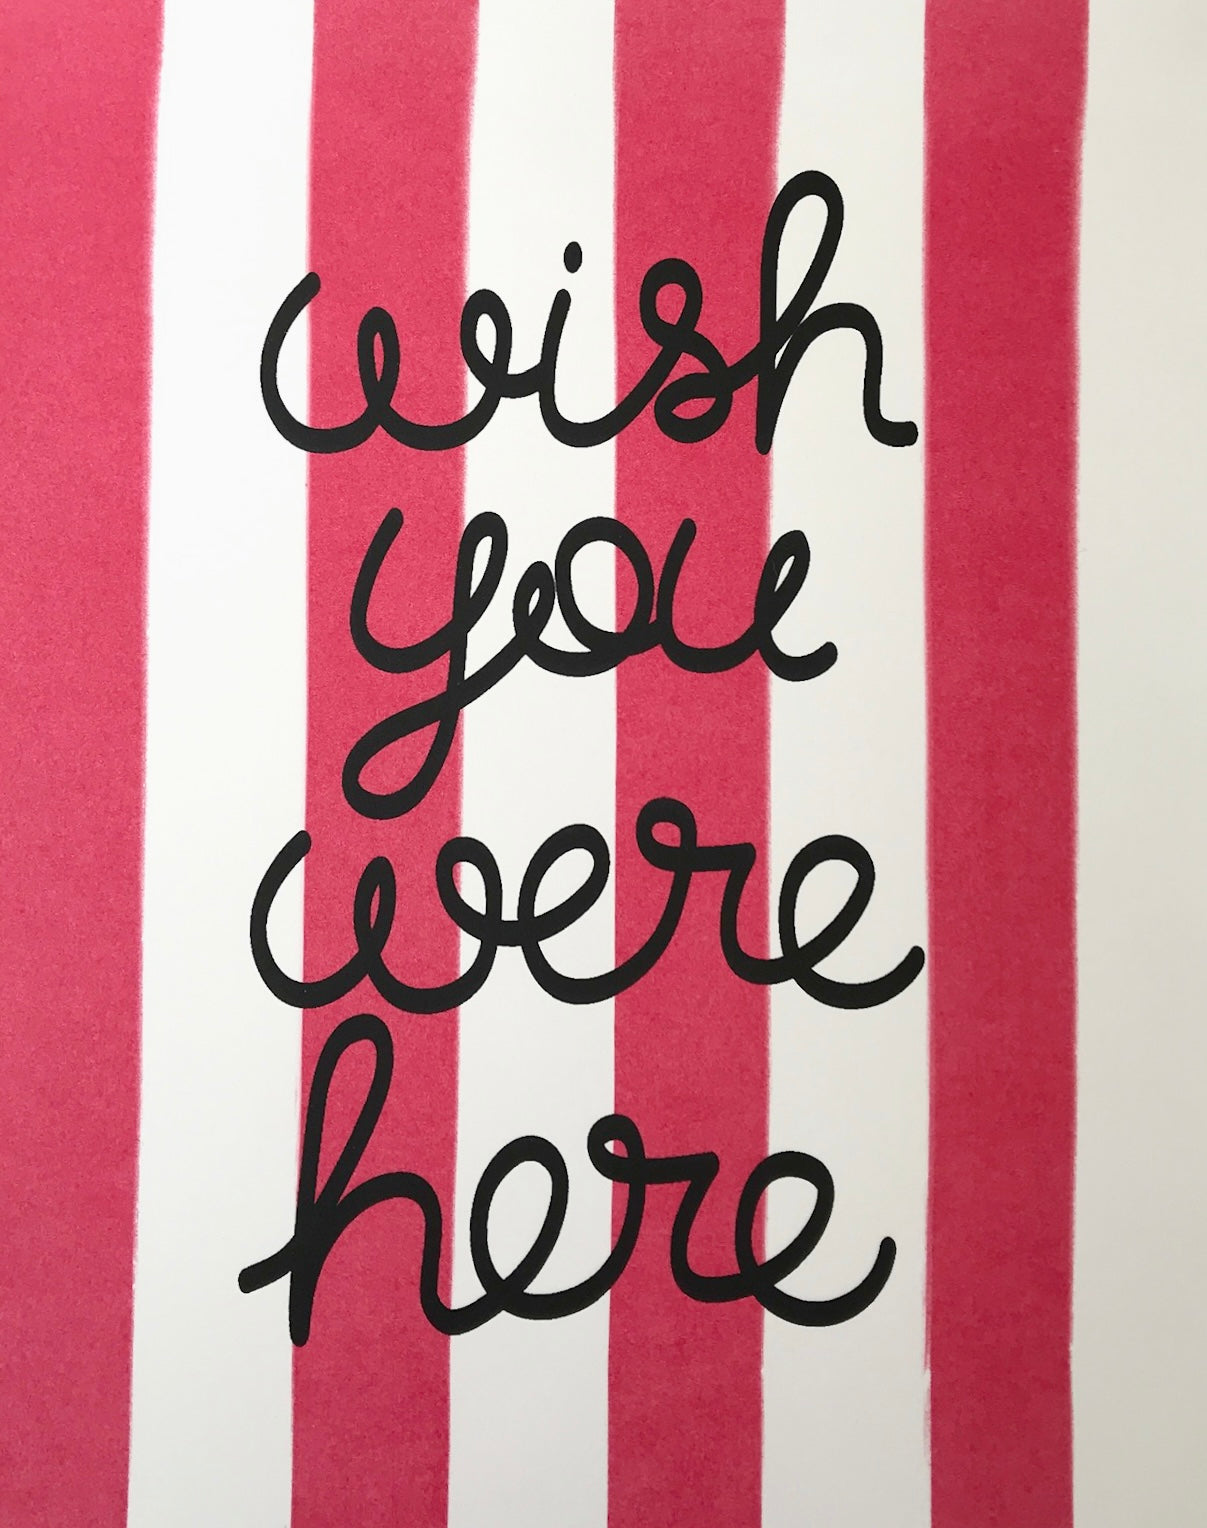 wish
you
were
here